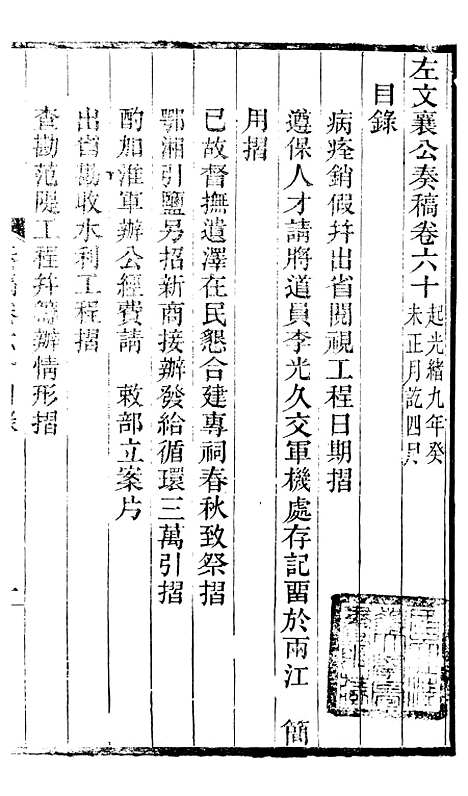 左文襄公奏稿卷六十 起光緒九年癸未正月訖四月
目錄
病痊銷假幷出省閱視工程日期摺
遵保人才請將道員李光久交軍機處存記留於兩江 簡
用摺
已故督撫遺澤在民懇合建專祠春秋致祭摺
鄂湘引鹽另招新商接辦發給循環三萬引摺
酌加淮軍辦公經費請 敕部立案片
出省勘收水利工程摺
查勘范隄工程幷籌辦情形摺